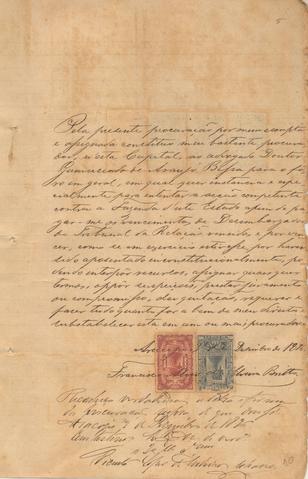 5
Pela presente procuração por mim escripta
e assignada constituo meu bastante procura-
dor, n'esta Capital, ao advogado Doutor
Gumercindo de Araujo Bessa para o fo-
ro em geral, em qual quer instancia e espe-
cialmente para intentar a acção competente
contra a Fazenda d'este Estado afim de pa-
gar-me os vencimentos de Desembargador
do Tribunal da Relação vencidos e por ven-
cer, como se em exercicio estivesse por haver
sido aposentado inconstitucionalmente, po-
dendo interpor recursos, assignar quaes quer
termos, oppôr suspeições, prestar juramento
ou compromisso, dar quitação, requerer e
fazer tudo quanto for a bem de meu direito,
substabelecer esta em um ou mais procuradores.
Aracaju, Dezembro de
Francisco
Reconheço verdadeira a letra e firma
da procuração supra, do que dou fé
Aracajú 7 de Dezembro de
Em testemunho de verdade